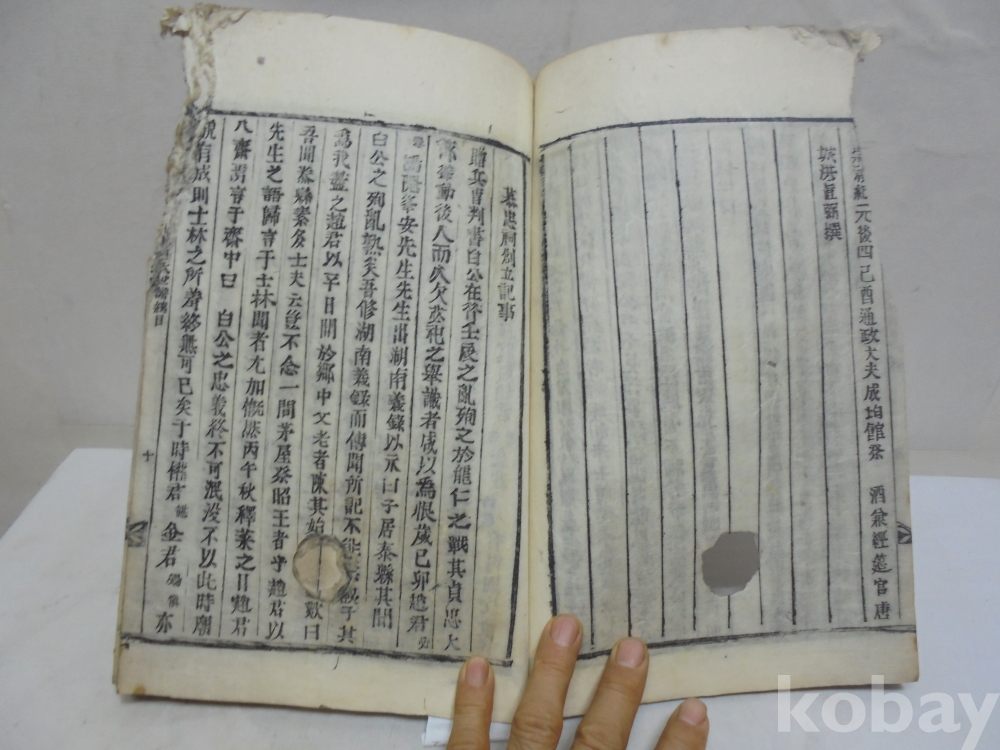 崇禎紀元後四己酉通政大夫成均館祭酒兼經筵官唐
城洪直弼撰
慕忠祠刱立記事
贈兵曹判書白公在昔壬辰之亂殉之於龍仁之戰其貞忠大
節聳動後人而尙欠芬祀之擧識者咸以爲恨歲己卯趙君
安先生先生出湖南義錄以示曰子居泰縣其聞
白公之殉亂熟矣吾修湖南義錄而傳聞所記不能 子其
爲我蓋之趙君以平日聞於鄕中父老者陳其始 歎曰
吾聞泰縣素多士夫云豈不念一間茅屋祭昭王者乎趙君以
先生之語歸言于士林聞者尤加慨然丙午秋釋菜之日趙君
入齋謂言于齋中曰 白公之忠義終不可泯没不以此時廟
貌有成則士林之所羞終無可已矣于時 君 金君 亦
十
kobay